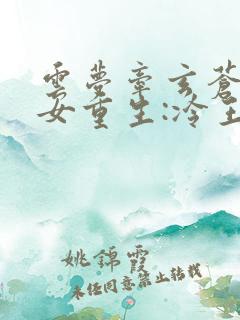 云梦牵玄苍
女重生:冷王
姚锦霞
未经同意禁止转载